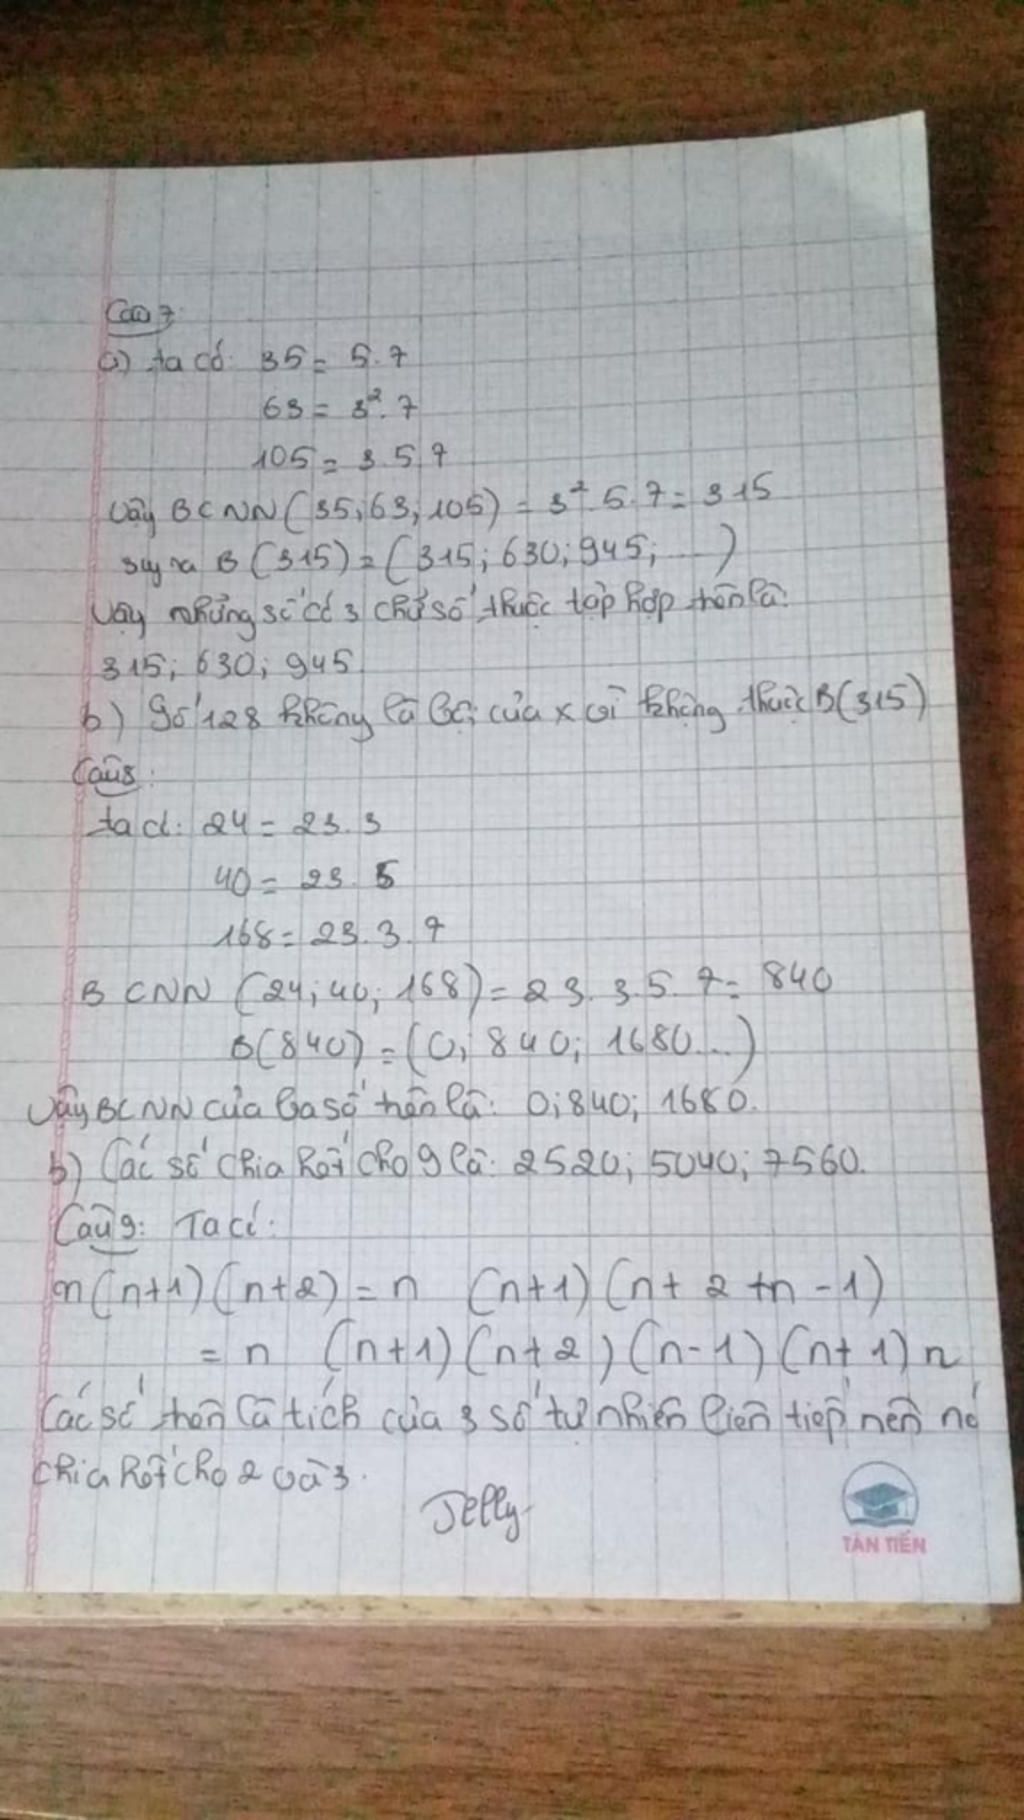 Câu 7:
a) ta có: 35 = 5.7
63 = 3². 7
105 = 3.5.7
Vậy BCNN (35; 63; 105) = 3². 5. 7 = 315
suy ra B (315) = (315; 630; 945; ...)
Vậy những số có 3 chữ số thuộc tập hợp trên là:
315; 630; 945.
b) Số 128 không là BC của x vì không thuộc B(315)
Câu 8:
ta có: 24 = 23.3
40 = 23. 5
168 = 23.3.7
BCNN (24; 40; 168) = 23. 3.5. 7 = 840
B(840) = (0; 840; 1680...)
Vậy BCNN của ba số trên là: 0; 840; 1680.
b) Các số chia hết cho 9 là: 2520; 5040; 7560.
Câu 9: Ta có:
n(n+1)(n+2) = n (n+1)(n+ 2 +n - 1)
= n (n+1)(n+2)(n-1)(n+1)n
Các số trên là tích của 3 số tự nhiên liên tiếp nên nó
chia hết cho 2 và 3.
Jelly
TÂN TIẾN